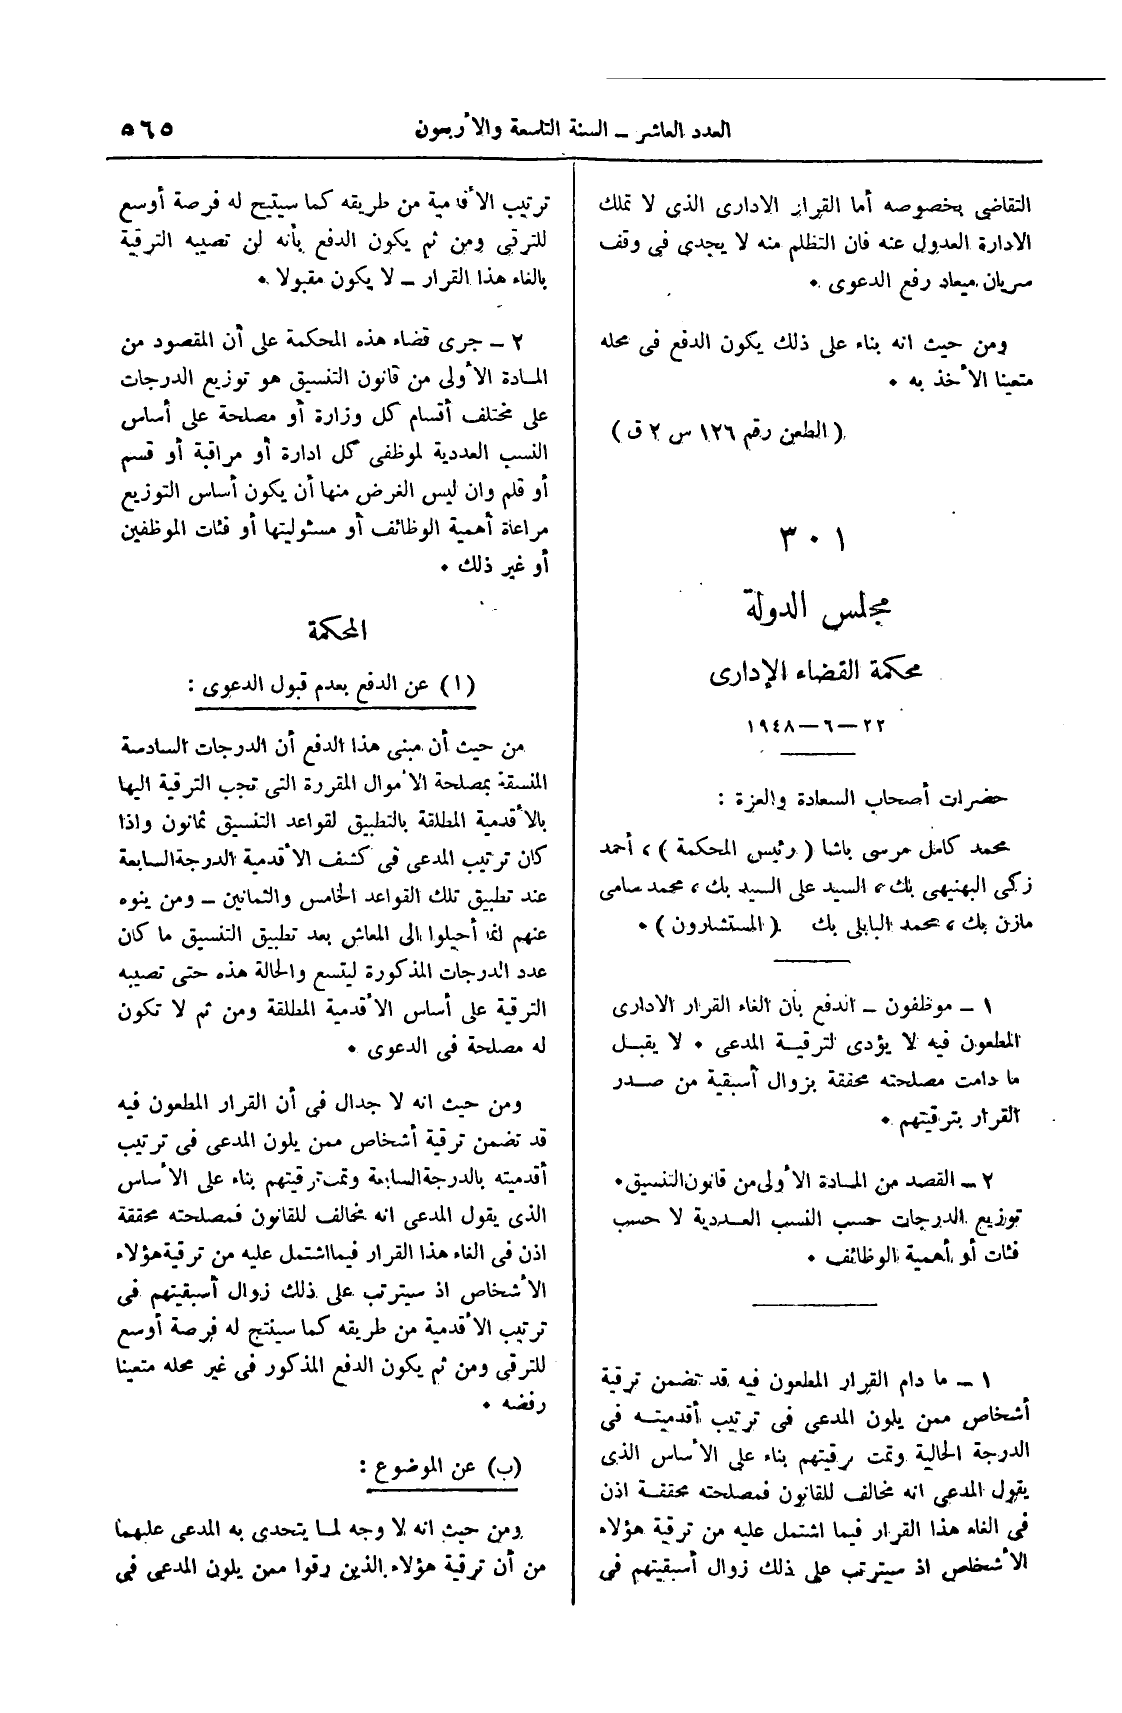 العدد العاشر ــ السنة التاسعة والأربعون
٥٦٥
التقاضى بخصوصه أما القرار الادارى الذى لا تملك
الادارة العدول عنه فان التظلم منه لا يجدى فى وقف
سريان ميعاد رفع الدعوى .
ومن حيث انه بناء على ذلك يكون الدفع فى محله
متعينا الأخذ به .
( الطعن رقم ١٢٦ س ٢ ق )
٣٠١
مجلس الدولة
محكمة القضاء الإدارى
٢٢ – ٦ – ١٩٤٨
حضرات أصحاب السعادة والعزة :
محمد كامل مرسى باشا ( رئيس المحكمة ) ، أحمد
زكى البهنيهى بك ، السيد على السيد بك ، محمد سامى
مازن بك ، محمد البابلى بك ( المستشارون ) .
١ ــ موظفون ــ الدفع بأن الغاء القرار الادارى
المطعون فيه لا يؤدى لترقية المدعى . لا يقبل
ما دامت مصلحته محققة بزوال أسبقية من صدر
القرار بترقيتهم .
٢ ــ القصد من المادة الأولى من قانون التنسيق .
توزيع الدرجات حسب النسب العددية لا حسب
فئات أو أهمية الوظائف .
١ ــ ما دام القرار المطعون فيه قد تضمن ترقية
أشخاص ممن يلون المدعى فى ترتيب أقدميته فى
الدرجة الحالية وتمت رقيتهم بناء على الأساس الذى
يقول المدعى انه مخالف للقانون فمصلحته محققة اذن
فى الغاء هذا القرار فيما اشتمل عليه من ترقية هؤلاء
الأشخاص اذ سيترتب على ذلك زوال أسبقيتهم فى
ترتيب الأقدمية من طريقه كما سيتيح له فرصة أوسع
للترقى ومن ثم يكون الدفع بأنه لن تصيبه الترقية
بالغاء هذا القرار ــ لا يكون مقبولا .
٢ ــ جرى قضاء هذه المحكمة على أن المقصود من
المادة الأولى من قانون التنسيق هو توزيع الدرجات
على مختلف أقسام كل وزارة أو مصلحة على أساس
النسب العددية لموظفى كل ادارة أو مراقبة أو قسم
أو قلم وان ليس الغرض منها أن يكون أساس التوزيع
مراعاة أهمية الوظائف أو مسئوليتها أو فئات الموظفين
أو غير ذلك .
المحكمة
(ا) عن الدفع بعدم قبول الدعوى :
من حيث أن مبنى هذا الدفع أن الدرجات السادسة
المنسقة بمصلحة الأموال المقررة التى تجب الترقية اليها
بالأقدمية المطلقة بالتطبيق لقواعد التنسيق ثمانون واذا
كان ترتيب المدعى فى كشف الأقدمية الدرجة السابعة
عند تطبيق تلك القواعد الخامس والثمانين ــ ومن ينوه
عنهم انما أحيلوا الى المعاش بعد تطبيق التنسيق ما كان
عدد الدرجات المذكورة ليتسع والحالة هذه حتى تصيبه
الترقية على أساس الأقدمية المطلقة ومن ثم لا تكون
له مصلحة فى الدعوى .
ومن حيث انه لا جدال فى أن القرار المطعون فيه
قد تضمن ترقية أشخاص ممن يلون المدعى فى ترتيب
أقدميته بالدرجة السابعة وتمت ترقيتهم بناء على الأساس
الذى يقول المدعى انه مخالف للقانون فمصلحته محققة
اذن فى الغاء هذا القرار فيما اشتمل عليه من ترقية هؤلاء
الأشخاص اذ سيترتب على ذلك زوال أسبقيتهم فى
ترتيب الأقدمية من طريقه كما سينتج له فرصة أوسع
للترقى ومن ثم يكون الدفع المذكور فى غير محله متعينا
رفضه .
(ب) عن الموضوع :
ومن حيث انه لا وجه لما يتحدى به المدعى عليهما
من أن ترقية هؤلاء الذين رقوا ممن يلون المدعى فى